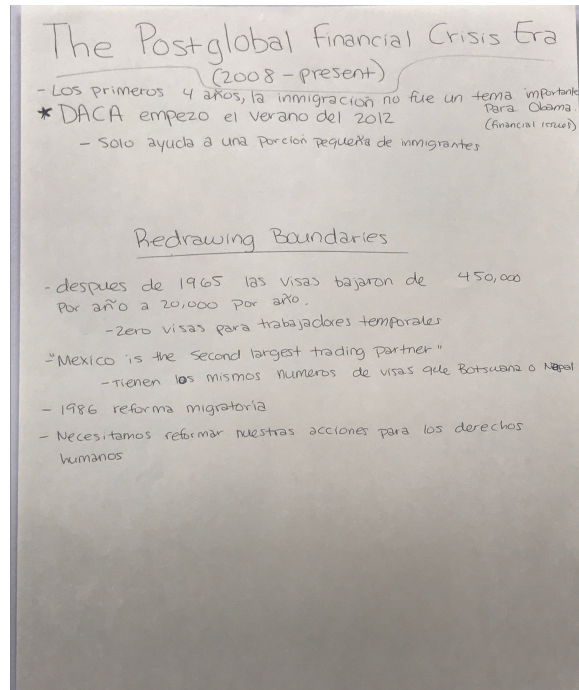 The Postglobal Financial Crisis Era
(2008 - present)
- Los primeros 4 años, la inmigracion no fue un tema importante
Para Obama.
(financial issues)
* DACA empezo el verano del 2012
- Solo ayuda a una porcion pequeña de inmigrantes
Redrawing Boundaries
- despues de 1965 las visas bajaron de 450,000
Por año a 20,000 por año.
- Zero visas para trabajadores temporales
- "Mexico is the second largest trading partner"
- Tienen los mismos numeros de visas que Botswana o Nepal
- 1986 reforma migratoria
- Necesitamos reformar nuestras acciones para los derechos
humanos